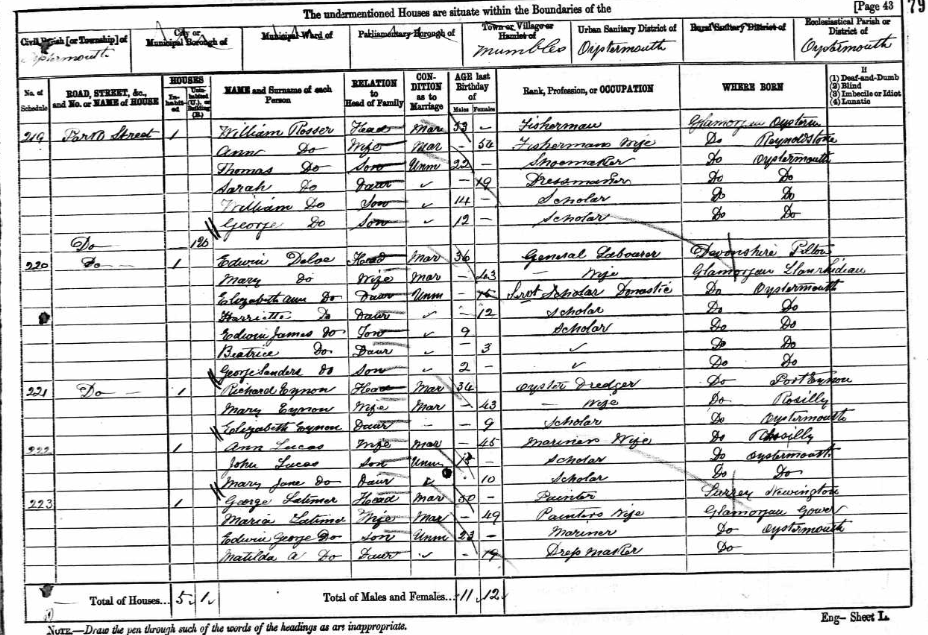 The undermentioned Houses are situate within the Boundaries of the [Page 43 79
Civil Parish [or Township] of City or Municipal Borough of Municipal Ward of Parliamentary Borough of Town or Village or Hamlet of Urban Sanitary District of Rural Sanitary District of Ecclesiastical Parish or District of
Oystermouth Mumbles Oystermouth Oystermouth
No. of Schedule ROAD, STREET, &c., and No. or NAME of HOUSE HOUSES Inhabited Uninhabited (U.), or Building (B.) NAME and Surname of each Person RELATION to Head of Family CONDITION as to Marriage AGE last Birthday of Males Females Rank, Profession, or OCCUPATION WHERE BORN If (1) Deaf-and-Dumb (2) Blind (3) Imbecile or Idiot (4) Lunatic
219 Street 1 William Rosser Head Mar 53 Fisherman Glamorgan
Ann Do Wife Mar - 54 Fishermans Wife Do Reynoldstone
Thomas Do Son Unm 22 - Shoemaker Do Oystermouth
Sarah Do Daur ✓ - 19 Dressmaker Do Do
William Do Son ✓ 14 - Scholar Do Do
George Do Son ✓ 12 - Scholar Do Do
Do
220 Do 1 Edwin Head Mar 36 General Labourer Devonshire Pilton
Mary do Wife Mar - 43 - Wife Glamorgan
Elizabeth Ann Do Daur Unm - 15 Scholar Do Oystermouth
Harriette Do Daur ✓ - 12 Scholar Do Do
Edwin James do Son ✓ 9 Scholar Do Do
Beatrice Do Daur ✓ - 3 ✓ Do Do
George Sanders do Son ✓ 2 - ✓ Do Do
221 Do 1 Richard Eynon Head Mar 34 Oyster Dredger Do Port Eynon
Mary Eynon Wife Mar - 43 - Wife Do Rosilly
Elizabeth Eynon Daur - - 9 Scholar Do Oystermouth
222 1 Ann Lucas Wife Mar - 45 Mariners Wife Do
John Lucas Son Unm - Scholar Do Oystermouth
Mary Jane do Daur - 10 Scholar Do Do
223 1 George Latimer Head Mar 50 - Painter Surrey Newington
Maria Latimer Wife Mar - 49 Painters Wife Glamorgan Gower
Edwin George Do Son Unm 23 - Mariner Do Oystermouth
Matilda A Do Daur ✓ - 19 Dress Maker Do
Total of Houses... 5 1 Total of Males and Females... 11 12
NOTE.—Draw the pen through such of the words of the headings as are inappropriate.
Eng— Sheet L.